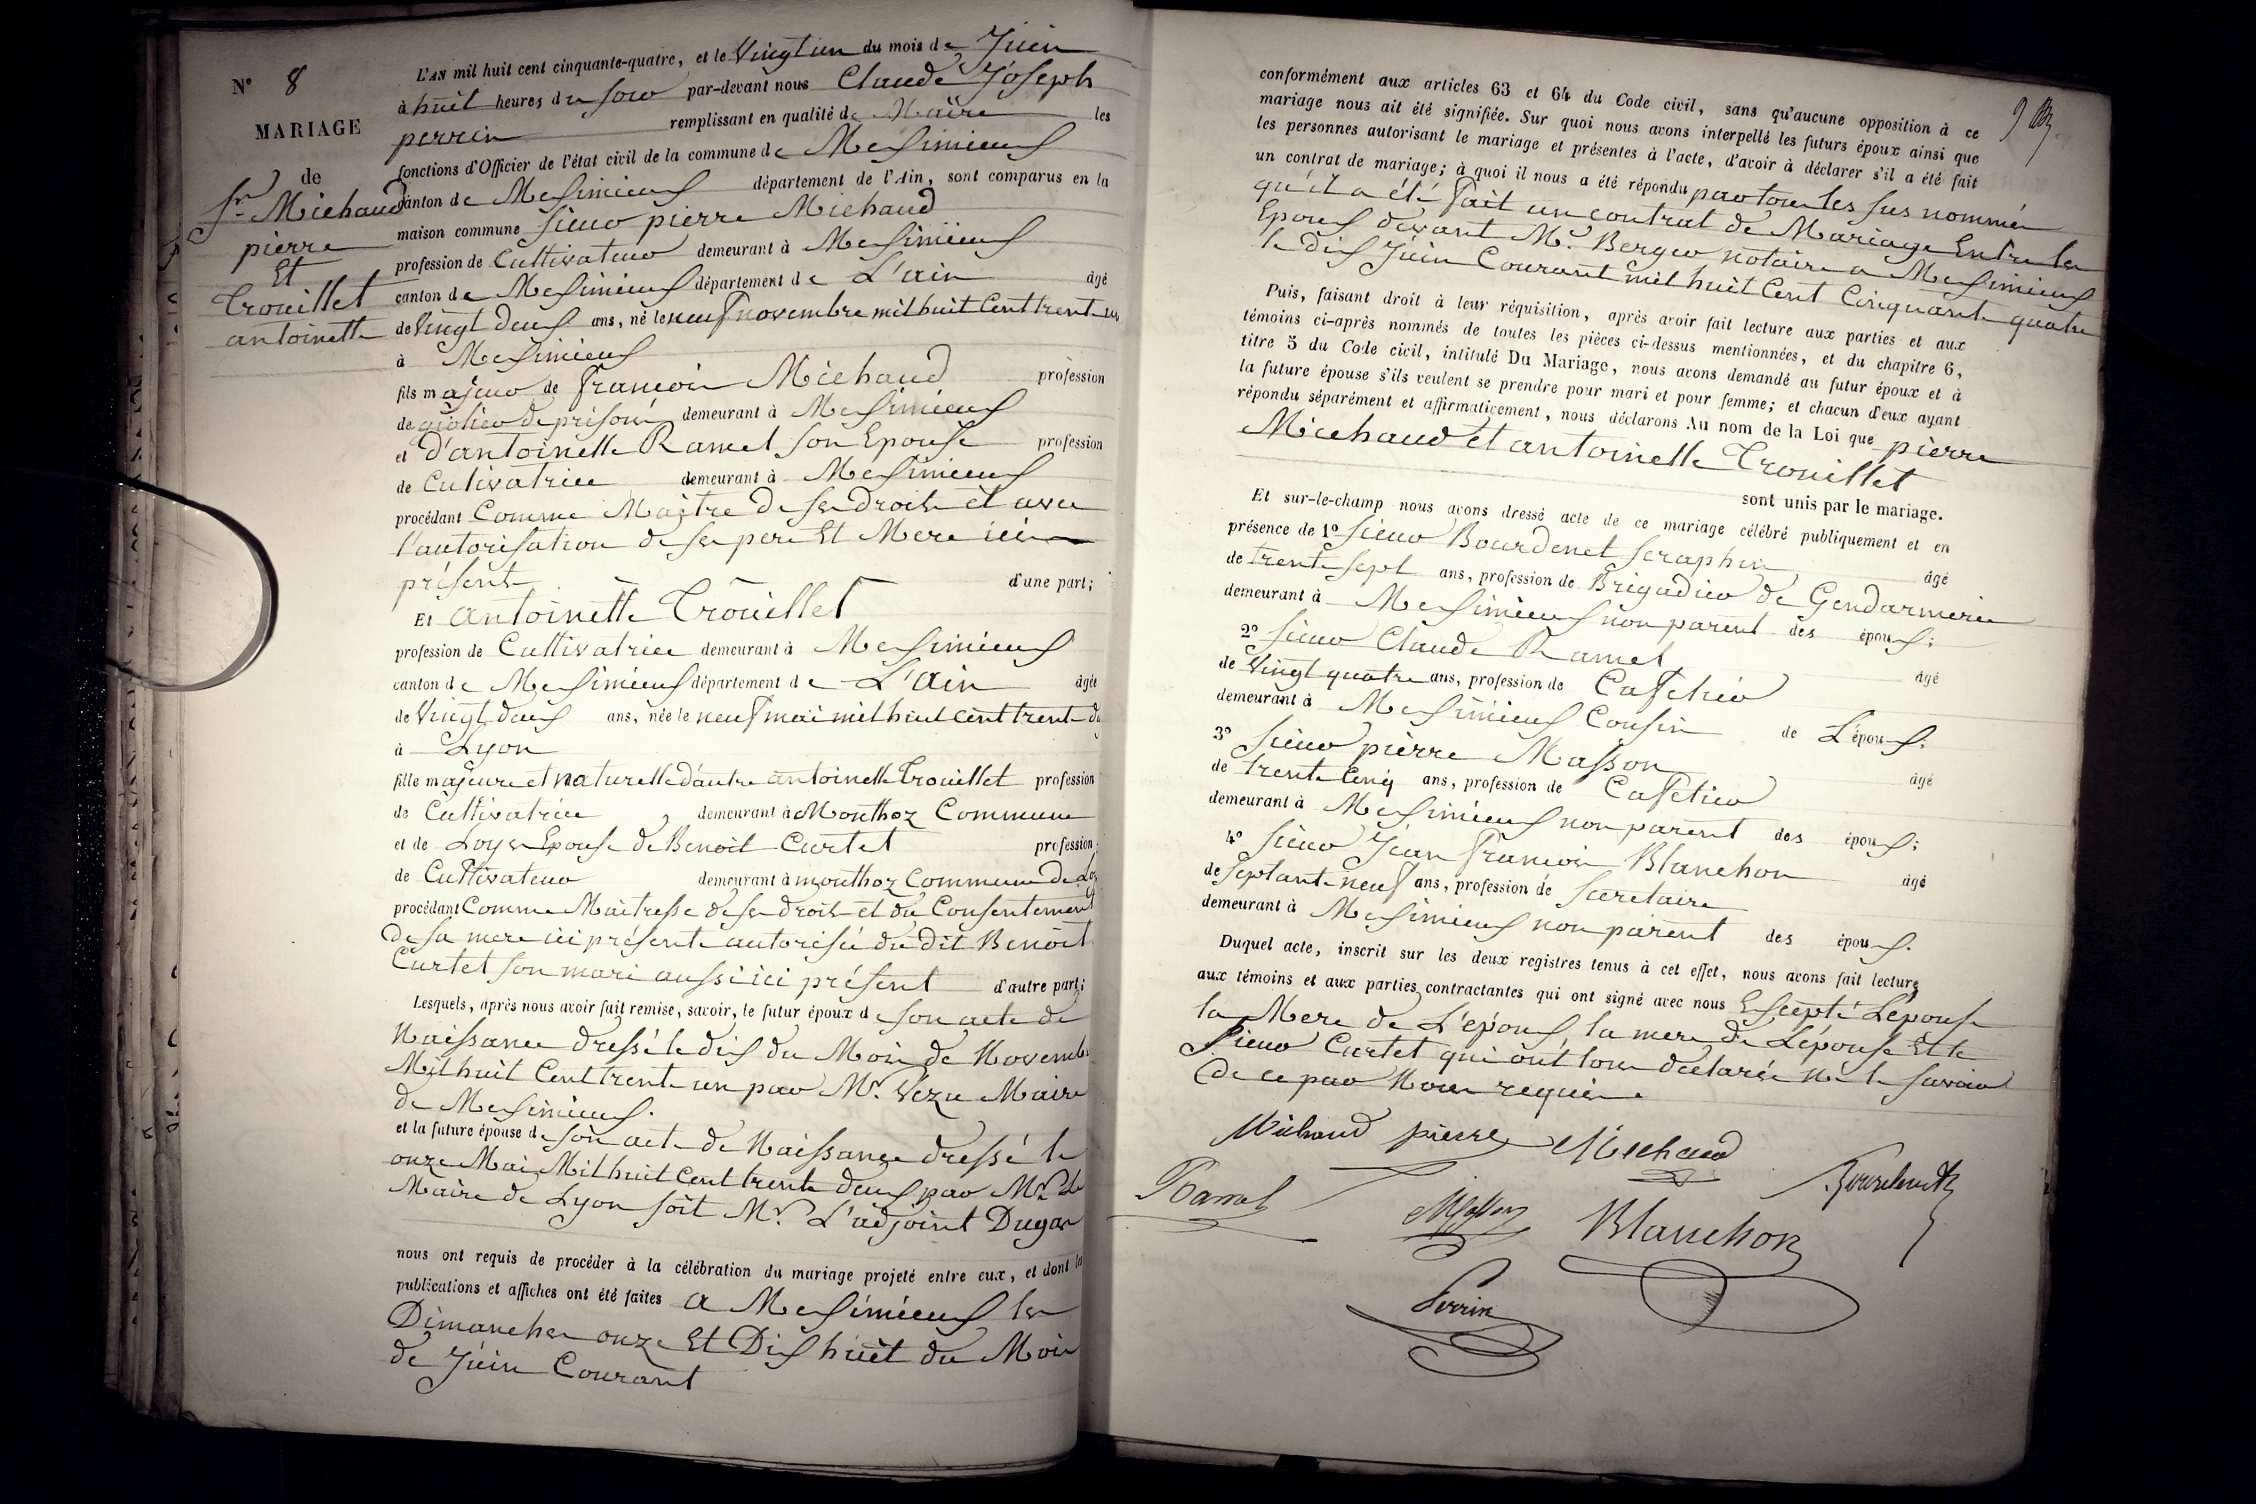 N° 8
MARIAGE
de
Sr Michaud
pierre
Et
Trouillet
antoinette
L'AN mil huit cent cinquante-quatre, et le Vingt un du mois de Juin
à huit heures du soir par-devant nous Claude Joseph
perrin remplissant en qualité de Maire les
fonctions d'Officier de l'état civil de la commune de Meximieux
canton de Meximieux département de l'Ain, sont comparus en la
maison commune sieur pierre Michaud
profession de Cultivateur demeurant à Meximieux
canton de Meximieux département de L'ain âgé
de Vingt deux ans, né le neuf novembre mil huit Cent trente un
à Meximieux
fils majeur de francois Michaud profession
de géolier de prison demeurant à Meximieux
et d'antoinette Ramel son Epouse profession
de Cultivatrice demeurant à Meximieux
procédant Comme Maitre de ses droits et avec
l'autorisation de ses pere Et Mere ici
présents d'une part;
Et antoinette Trouillet
profession de Cultivatrice demeurant à Meximieux
canton de Meximieux département de L'Ain âgée
de Vingt deux ans, née le neuf mai mil huit cent trente
à Lyon
fille majeure et naturelle d'autre antoinette Trouillet profession
de Cultivatrice demeurant à Monthoz Commune
et de Loyes Epouse de Benoit Curtet profession
de Cultivateur demeurant à monthoz Commune de
procédant Comme Maitresse de ses droits et du Consentement
de sa mere ici présente autorisée du dit Benoit
Curtet son mari aussi ici présent d'autre part;
Lesquels, après nous avoir fait remise, savoir, le futur époux de son acte de
Naissance dressé le dix du Mois de Novembre
Mil huit Cent trente un par Mr. Vezu Maire
de Meximieux.
et la future épouse de son acte de Naissance dressé le
onze Mai Mil huit Cent trente deux par Mr. Le
Maire de Lyon soit Mr. L'adjoint Dugas
nous ont requis de procéder à la célébration du mariage projeté entre eux, et dont les
publications et affiches ont été faites a Meximieux les
Dimanches onze Et Dix huit du Mois
de Juin Courant
conformément aux articles 63 et 64 du Code civil, sans qu'aucune opposition à ce
mariage nous ait été signifiée. Sur quoi nous avons interpellé les futurs époux ainsi que
les personnes autorisant le mariage et présentes à l'acte, d'avoir à déclarer s'il a été fait
un contrat de mariage; à quoi il nous a été répondu par tous les sus nommés
qu'il a été fait un contrat de Mariage Entre les
Epoux devant Mr. Berger notaire a Meximieux
le dix Juin Courant mil huit Cent Cinquante quatre
Puis, faisant droit à leur réquisition, après avoir fait lecture aux parties et aux
témoins ci-après nommés de toutes les pièces ci-dessus mentionnées, et du chapitre 6,
titre 5 du Code civil, intitulé Du Mariage, nous avons demandé au futur époux et à
la future épouse s'ils veulent se prendre pour mari et pour femme; et chacun d'eux ayant
répondu séparément et affirmativement, nous déclarons Au nom de la Loi que pierre
Michaud et antoinette Trouillet
sont unis par le mariage.
Et sur-le-champ nous avons dressé acte de ce mariage célébré publiquement et en
présence de 1° sieur Bourdenet Seraphin âgé
de trente sept ans, profession de Brigadier de Gendarmerie
demeurant à Meximieux non parent des époux;
2° sieur Claude Ramel âgé
de Vingt quatre ans, profession de Caffetier
demeurant à Meximieux Cousin de L'époux.
3° sieur pierre Masson âgé
de trente Cinq ans, profession de Caffetier
demeurant à Meximieux non parent des époux;
4° sieur Jean francois Blanchon âgé
de Septante neuf ans, profession de Secretaire
demeurant à Meximieux non parent des époux.
Duquel acte, inscrit sur les deux registres tenus à cet effet, nous avons fait lecture
aux témoins et aux parties contractantes qui ont signé avec nous Excepté L'épouse
la Mere de L'époux, la mere de L'épouse Et le
sieur Curtet qui ont tous déclarés Ne le savoir
de ce par Nous requis.
Michaud pierre Michaud
Ramel Masson Blanchon
Perrin